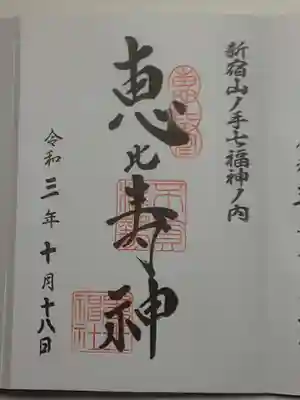 新宿山ノ手七福神ノ内
恵比寿神
令和三年十月十八日